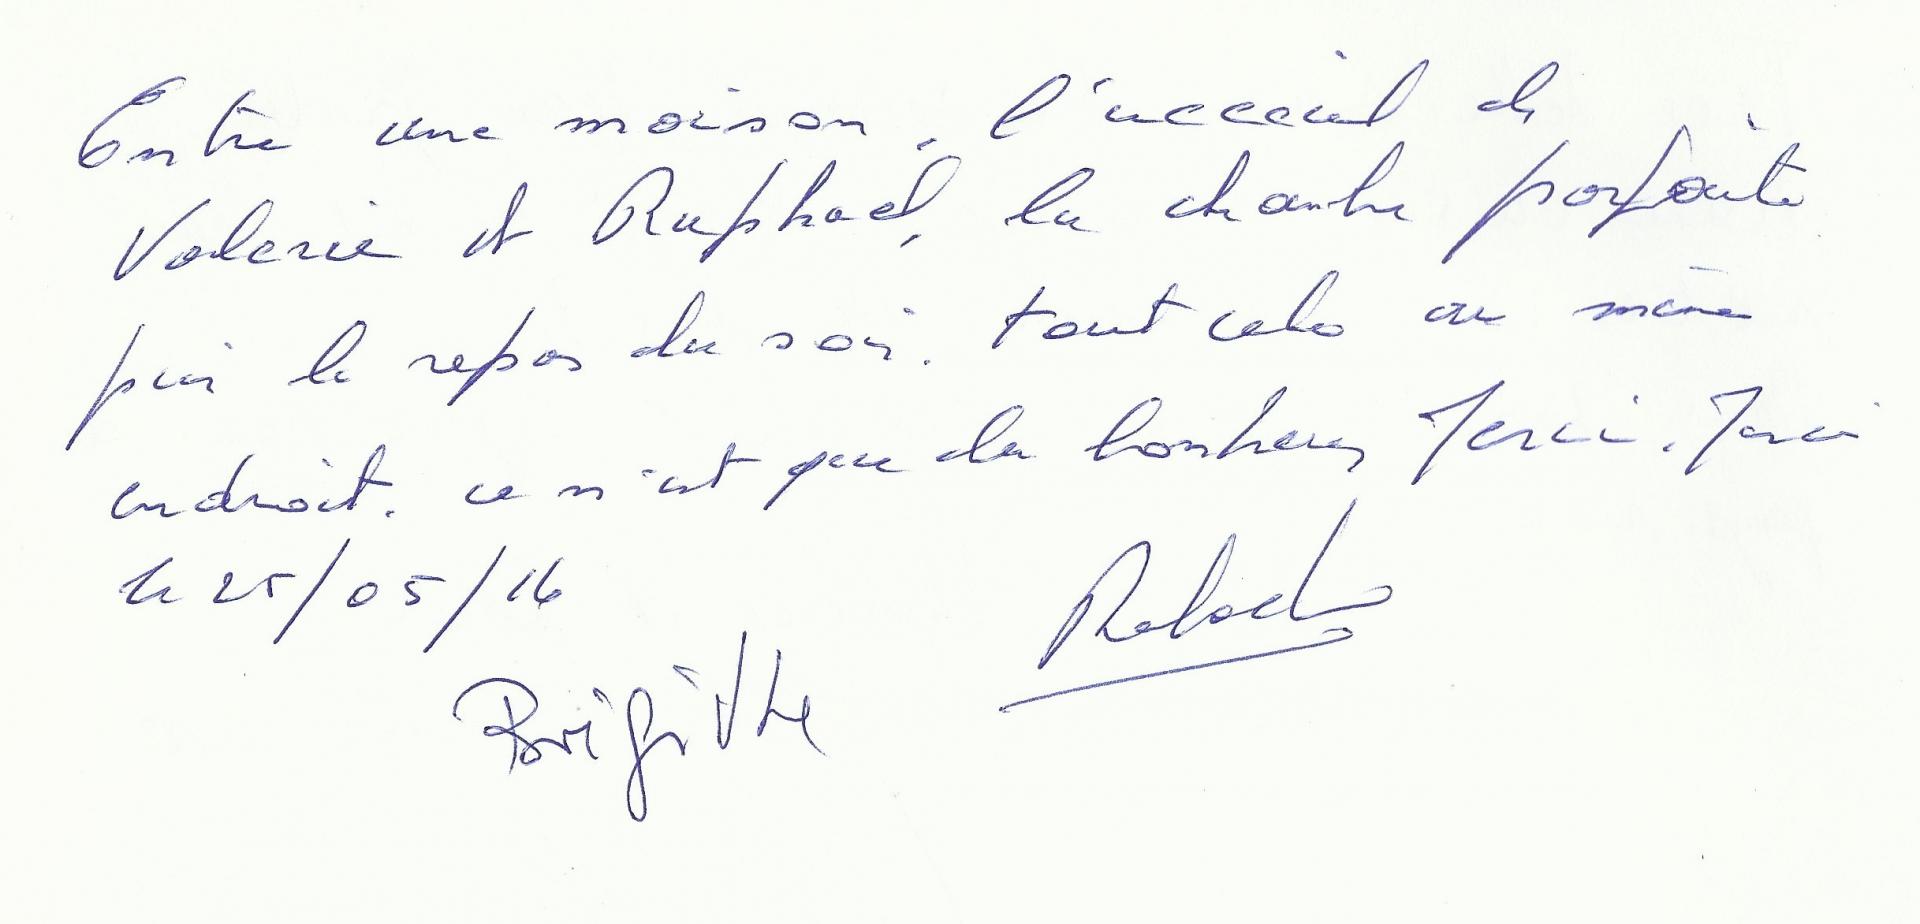 Entre une maison, l'acceuil de
Valerie et Raphael, la chambre parfaite
puis le repas du soir. tout cela au même
endroit. ce n'est que du bonheur Merci. Merci
le 25/05/16
Brigitte